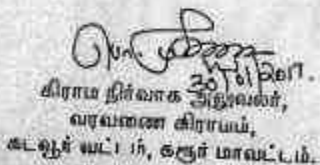 20/01/2017.
கிராம நிர்வாக அலுவலர்,
வரவணை கிராமம்,
கடவூர் வட்டம், கரூர் மாவட்டம்.